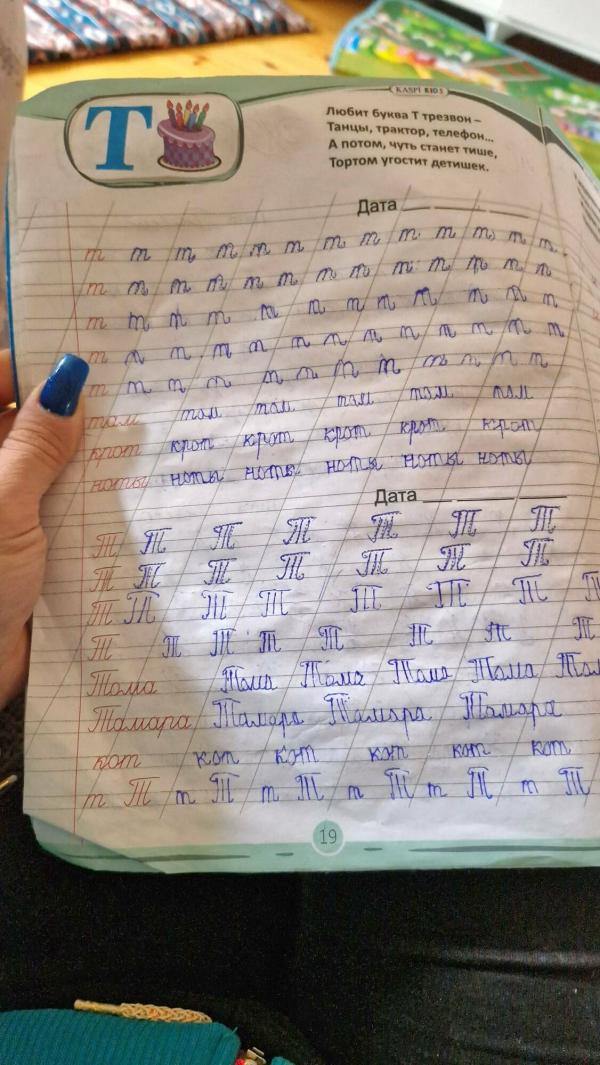 KASPI KIDS
Т
Любит буква Т трезвон –
Танцы, трактор, телефон...
А потом, чуть станет тише,
Тортом угостит детишек.
Дата
т т т т т т т т т т т т т
т т т т т т т т т т т т
т т т т т т т т т т т т
т т т т т т т т т т т т т
т т т т т т т т т т т т
там там там там там там
крот крот крот крот крот крот
ноты ноты ноты ноты ноты ноты
Дата
Т Т Т Т Т Т Т
Т Т Т Т Т Т Т
Т Т Т Т Т Т Т Т
Т Т Т Т Т Т Т Т
Тома Тома Тома Тома Тома
Тамара Тамара Тамара Тамара
кот кот кот кот кот кот
т Т т Т т Т т Т т Т т Т
19